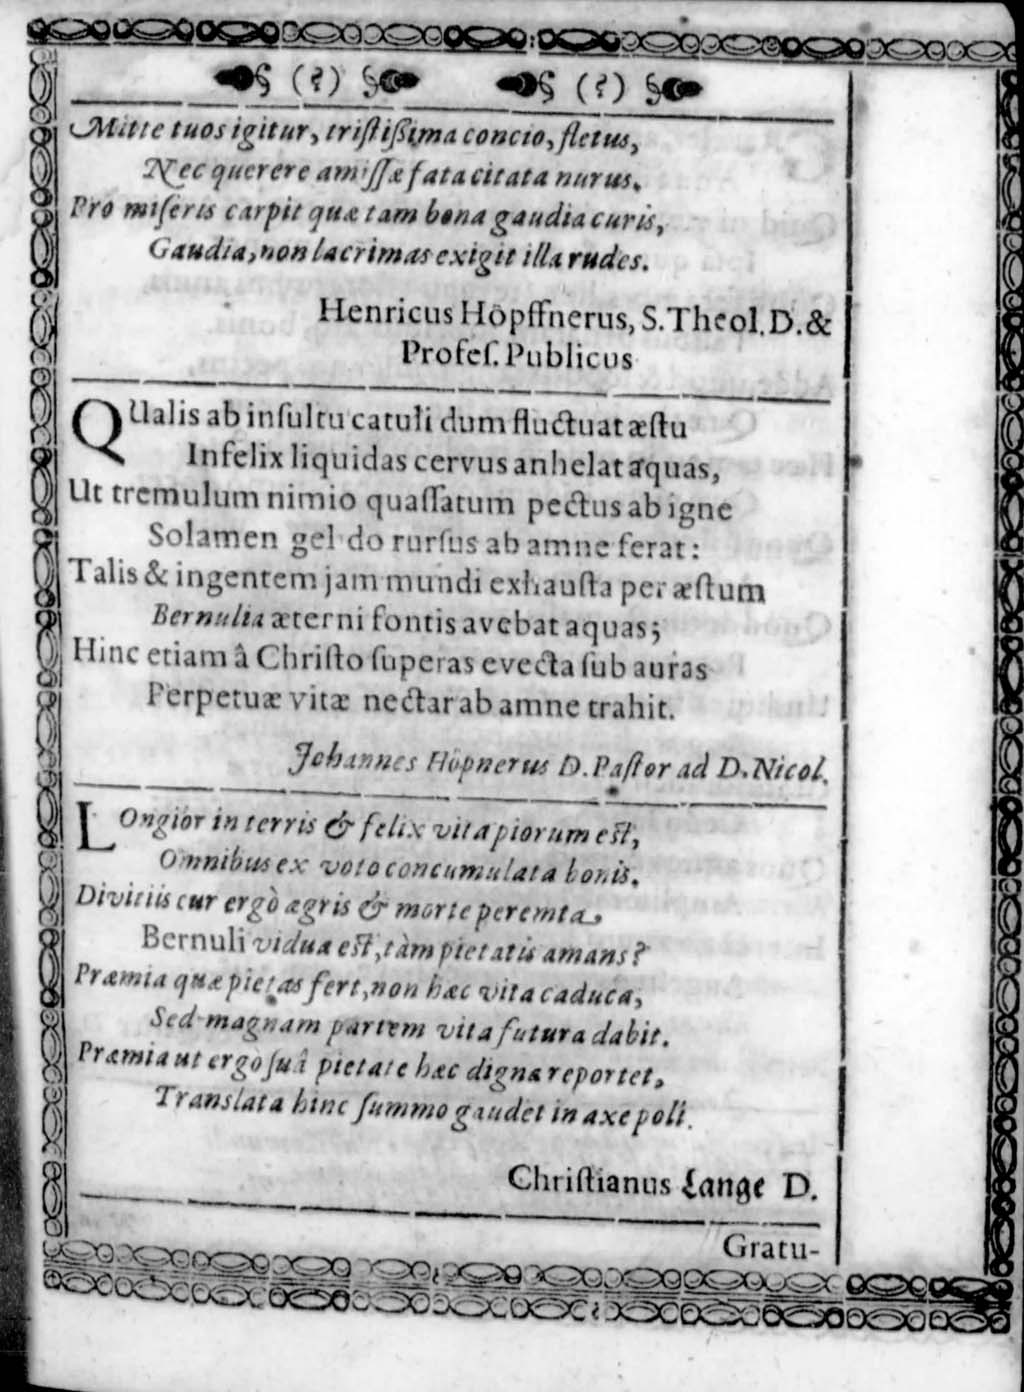 (?) (?)
Mitte tuos igitur, tristißima concio, fletus,
Nec querere amissæ fata citata nurus.
Pro miseris carpit quæ tam bona gaudia curis,
Gaudia, non lacrimas exigit illa rudes.
Henricus Höpffnerus, S. Theol. D. &
Profes. Publicus
QUalis ab insultu catuli dum fluctuat æstu
Infelix liquidas cervus anhelat aquas,
Ut tremulum nimio quassatum pectus ab igne
Solamen gel do rursus ab amne ferat:
Talis & ingentem jam mundi exhausta per æstum
Bernulia æterni fontis avebat aquas;
Hinc etiam â Christo superas evecta sub auras
Perpetuæ vitæ nectar ab amne trahit.
Johannes Höpnerus D. Pastor ad D. Nicol.
LOngior in terris & felix vita piorum est,
Omnibus ex voto concumulata bonis.
Divitiis cur ergò ægris & morte peremta
Bernuli vidua est, tàm pietatis amans?
Præmia quæ pietas fert, non hæc vita caduca,
Sed magnam partem vita futura dabit.
Præmia ut ergò suâ pietate hæc digna reportet,
Translata hinc summo gaudet in axe poli.
Christianus Lange D.
Gratu-